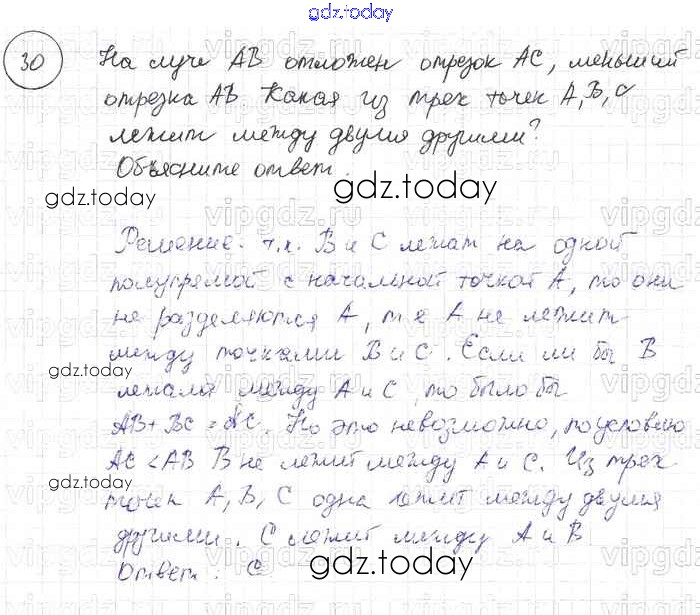 gdz.today
30 На луче АВ отложен отрезок АС, меньший
отрезка АВ Какая из трех точек А, В, С
лежит между двумя другими?
Объясните ответ.
gdz.today gdz.today
Решение. т.к. В и С лежат на одной
полупрямой с начальной точкой А, то они
не разделяются А, т.е А не лежит
между точками В и С. Если ли бы В
gdz.today
лежала между А и С, то было бы
АВ + ВС = АС. Но это невозможно, по условию
АС < АВ В не лежит между А и С. Из трех
точек А, В, С одна лежит между двумя
gdz.today
другими. С лежит между А и В
Ответ: С
gdz.today